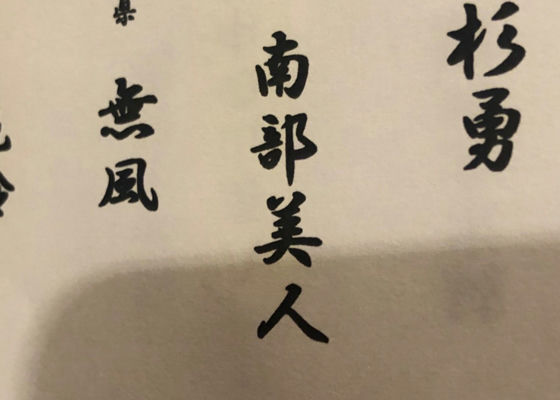 杉勇
南部美人
県
無風